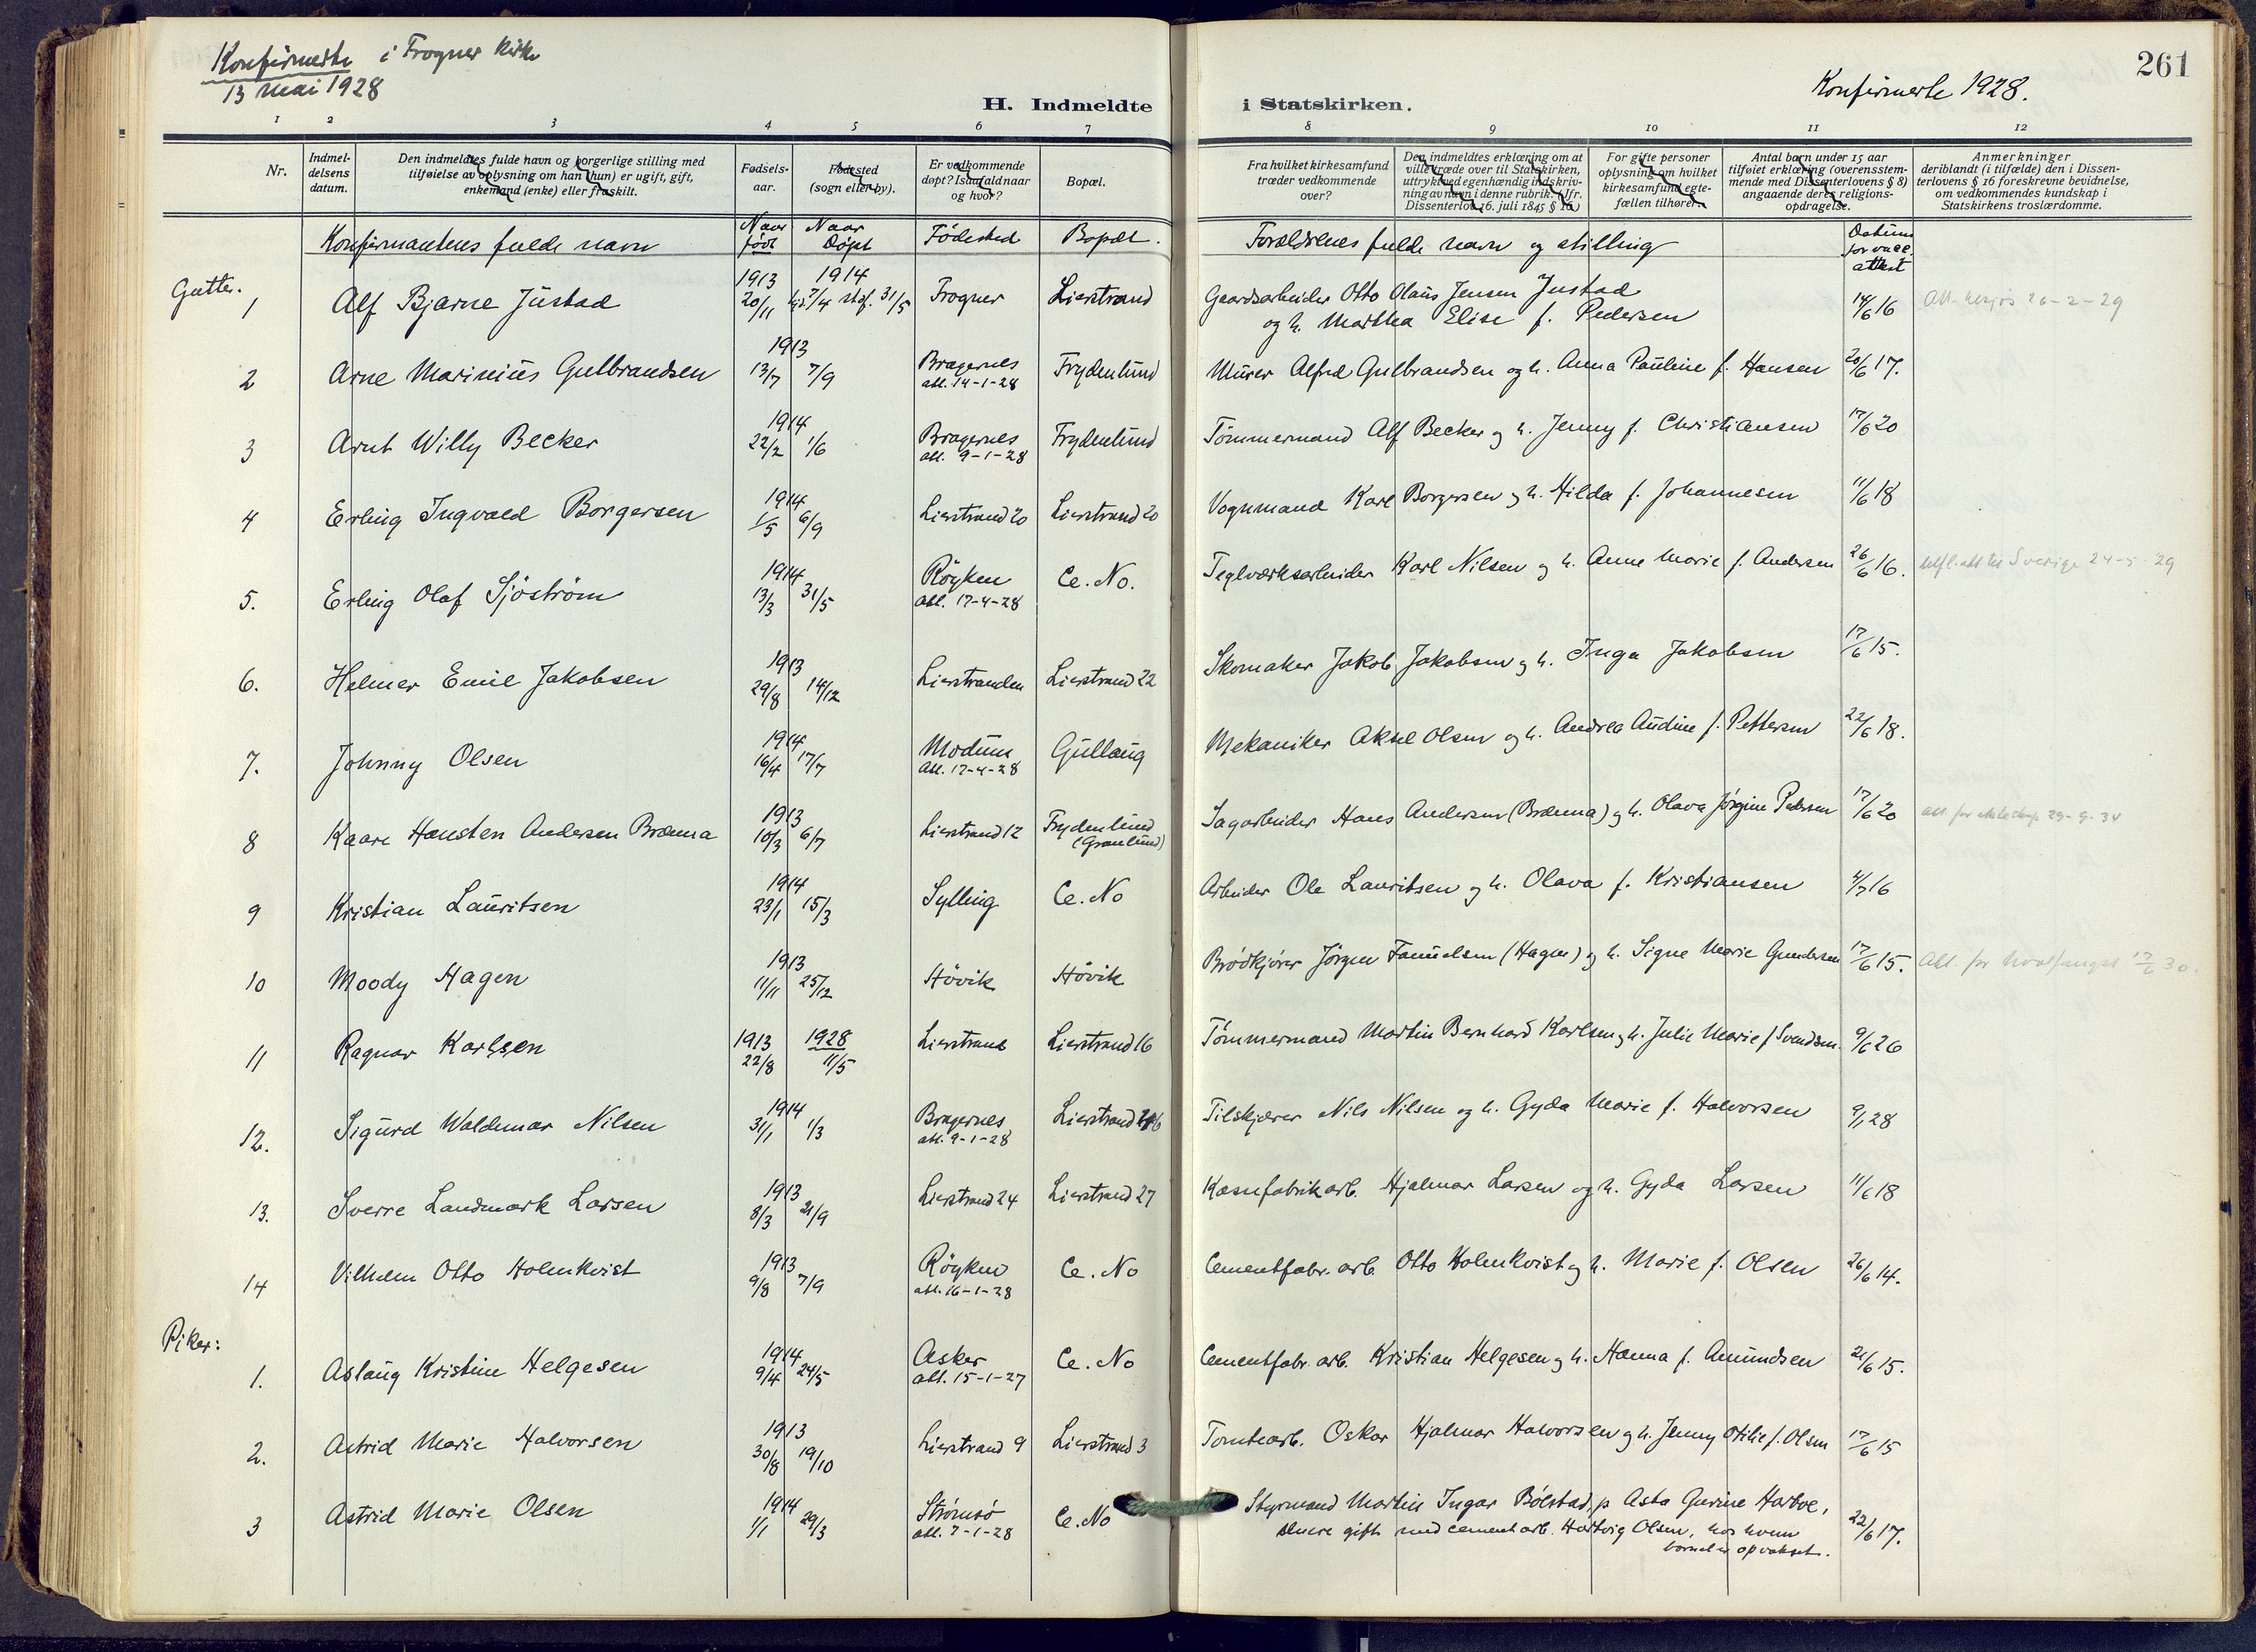 Konfirmerte i Frogner kirke
13 mai 1928
261
Konfirmerte 1928.
H. Indmeldte i Statskirken.
1 2 3 4 5 6 7 8 9 10 11 12
Nr.
Indmeldelsens datum.
Den indmeldtes fulde navn og borgerlige stilling med tilføielse av oplysning om han (hun) er ugift, gift, enkemand (enke) eller fraskilt.
Fødselsaar.
Fødested (sogn eller by).
Er vedkommende døpt? Isaafald naar og hvor?
Bopæl.
Fra hvilket kirkesamfund træder vedkommende over?
Den indmeldtes erklæring om at ville træde over til Statskirken, uttrykt ved egenhændig indskrivning av navn i denne rubrik. (Jfr. Dissenterlov 16. juli 1845 § 16.)
For gifte personer oplysning om hvilket kirkesamfund egtefællen tilhører.
Antal barn under 15 aar tilføiet erklæring (overensstemmende med Dissenterlovens § 8) angaaende deres religionsopdragelse.
Anmerkninger deriblandt (i tilfælde) den i Dissenterlovens § 16 foreskrevne bevidnelse, om vedkommendes kundskap i Statskirkens troslærdomme.
Konfirmantens fulde navn Naar født Naar Döpt Födested Bopæl. Forældrenes fulde navn og stilling Datum for vacc. attest
Gutter.
1 Alf Bjarne Justad 1913 20/11 1914 hj. 7/4 stsf. 31/5 Frogner Lierstrand Gaardsarbeider Otto Olaus Jensen Justad
og h. Martha Elise f. Pedersen 14/6 16 26-2-29
2 Arne Marinius Gulbrandsen 1913 13/7 7/9 Bragernes att. 14-1-28 Frydenlund Murer Alfred Gulbrandsen og h. Anna Pauline f. Hansen 20/6 17.
3 Arnt Willy Becker 1914 22/2 1/6 Bragernes att. 9-1-28 Frydenlund Tömmermand Alf Becker og h. Jenny f. Christiansen 17/6 20
4 Erling Ingvald Borgersen 1914 1/5 6/9 Lierstrand 20 Lierstrand 20 Vognmand Karl Borgersen og h. Hilda f. Johannesen 11/6 18
5. Erling Olaf Sjöström 1914 13/3 31/5 Röyken att. 17-4-28 Ce. No. Teglværksarbeider Karl Nilsen og h. Anne Marie f. Andersen 26/6 16. utfl. att til Sverige 24-5-29
6. Helmer Emil Jakobsen 1913 29/8 14/12 Lierstranden Lierstrand 22 Skomaker Jakob Jakobsen og h. Inga Jakobsen 17/6 15.
7. Johnny Olsen 1914 16/4 17/7 Modum att. 17-4-28 Gullaug Mekaniker Aksel Olsen og h. Andrea Audine f. Pettersen 22/6 18.
8 Kaare Hansten Andersen Brænna 1913 10/3 6/7 Lierstrand 12 Frydenlund (Granlund) Sagarbeider Hans Andersen (Brænna) og h. Olava Jörgine Pedersen 17/6 20 att. for 29-9-34
9 Kristian Lauritsen 1914 23/1 15/3 Sylling Ce. No Arbeider Ole Lauritsen og h. Olava f. Kristiansen 4/7 16
10 Moody Hagen 1913 11/11 25/12 Hövik Hövik Brödkjörer Jörgen Samuelsen (Hagen) og h. Signe Marie Gundersen 17/6 15. Att. for hvalfangst 17/6 30.
11 Ragnar Karlsen 1913 22/8 1928 11/5 Lierstrand Lierstrand 16 Tömmermand Martin Bernhard Karlsen og h. Julie Marie f. Svendsen. 9/6 26
12. Sigurd Waldemar Nilsen 1914 31/1 1/3 Bragernes att. 9-1-28 Lierstrand Tilskjærer Nils Nilsen og h. Gyda Marie f. Halvorsen 9/1 28
13. Sverre Landmark Larsen 1913 8/3 21/9 Lierstrand 24 Lierstrand 27 Kassefabrikarb. Hjalmar Larsen og h. Gyda Larsen 11/6 18
14 Vilhelm Otto Holmkvist 1913 9/8 7/9 Röyken att. 16-1-28 Ce. No Cementfabr. arb. Otto Holmkvist og h. Marie f. Olsen 26/6 14.
Piker:
1. Aslaug Kristine Helgesen 1914 9/4 24/5 Asker att. 15-1-27 Ce. No Cementfabr. arb. Kristian Helgesen og h. Hanna f. Amundsen 21/6 15.
2. Astrid Marie Halvorsen 1913 30/8 19/10 Lierstrand 9 Lierstrand 3 Tomtearb. Oskar Hjalmar Halvorsen og h. Jenny Otilie f. Olsen 17/6 15
3 Astrid Marie Olsen 1914 1/1 29/3 Strömsö att. 7-1-28 Ce. No Styrmand Martin Ingar Bölstad, p Asta Gurine Hartve,
senere gift med cementarb. Hartvig Olsen, hos hvem
barnet er opvokset. 22/6 17.